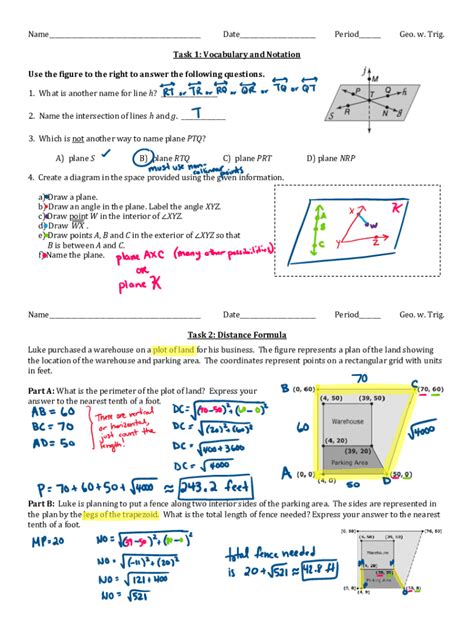 Name Date Period Geo. w. Trig.
Task 1: Vocabulary and Notation
Use the figure to the right to answer the following questions.
1. What is another name for line h? RT or TR or RQ or QR or TQ or QT
2. Name the intersection of lines h and g. T
3. Which is not another way to name plane PTQ?
A) plane S B) plane RTQ C) plane PRT D) plane NRP
must use non-collinear points
4. Create a diagram in the space provided using the given information.
a) Draw a plane.
b) Draw an angle in the plane. Label the angle XYZ.
c) Draw point W in the interior of ∠XYZ.
d) Draw WX .
e) Draw points A, B and C in the exterior of ∠XYZ so that
B is between A and C.
f) Name the plane. plane AXC (many other possibilities)
or
plane K
j
M
P T Q h
S R N g
A
B
C
X
W
Y Z
K
Name Date Period Geo. w. Trig.
Task 2: Distance Formula
Luke purchased a warehouse on a plot of land for his business. The figure represents a plan of the land showing
the location of the warehouse and parking area. The coordinates represent points on a rectangular grid with units
in feet.
Part A: What is the perimeter of the plot of land? Express your
answer to the nearest tenth of a foot.
AB = 60
BC = 70
AD = 50
There are vertical
or horizontal,
just count the
length!
DC = √(70-50)²+(60-0)²
DC = √(20)²+(60)²
DC = √400+3600
DC = √4000
P = 70 + 60 + 50 + √4000 ≈ 243.2 feet
70
B (0, 60) C (70, 60)
(4, 50) (39, 50)
60 Warehouse √4000
(4, 20) (39, 20)
Parking Area
A (0, 0) D (50, 0)
50
Part B: Luke is planning to put a fence along two interior sides of the parking area. The sides are represented in
the plan by the legs of the trapezoid. What is the total length of fence needed? Express your answer to the nearest
tenth of a foot.
MP = 20
NO = √(39-50)²+(20-0)²
NO = √(-11)²+(20)²
NO = √121+400
NO = √521
total fence needed
is 20+√521 ≈ 42.8 ft
(0, 60) (70, 60)
Warehouse
Parking Area